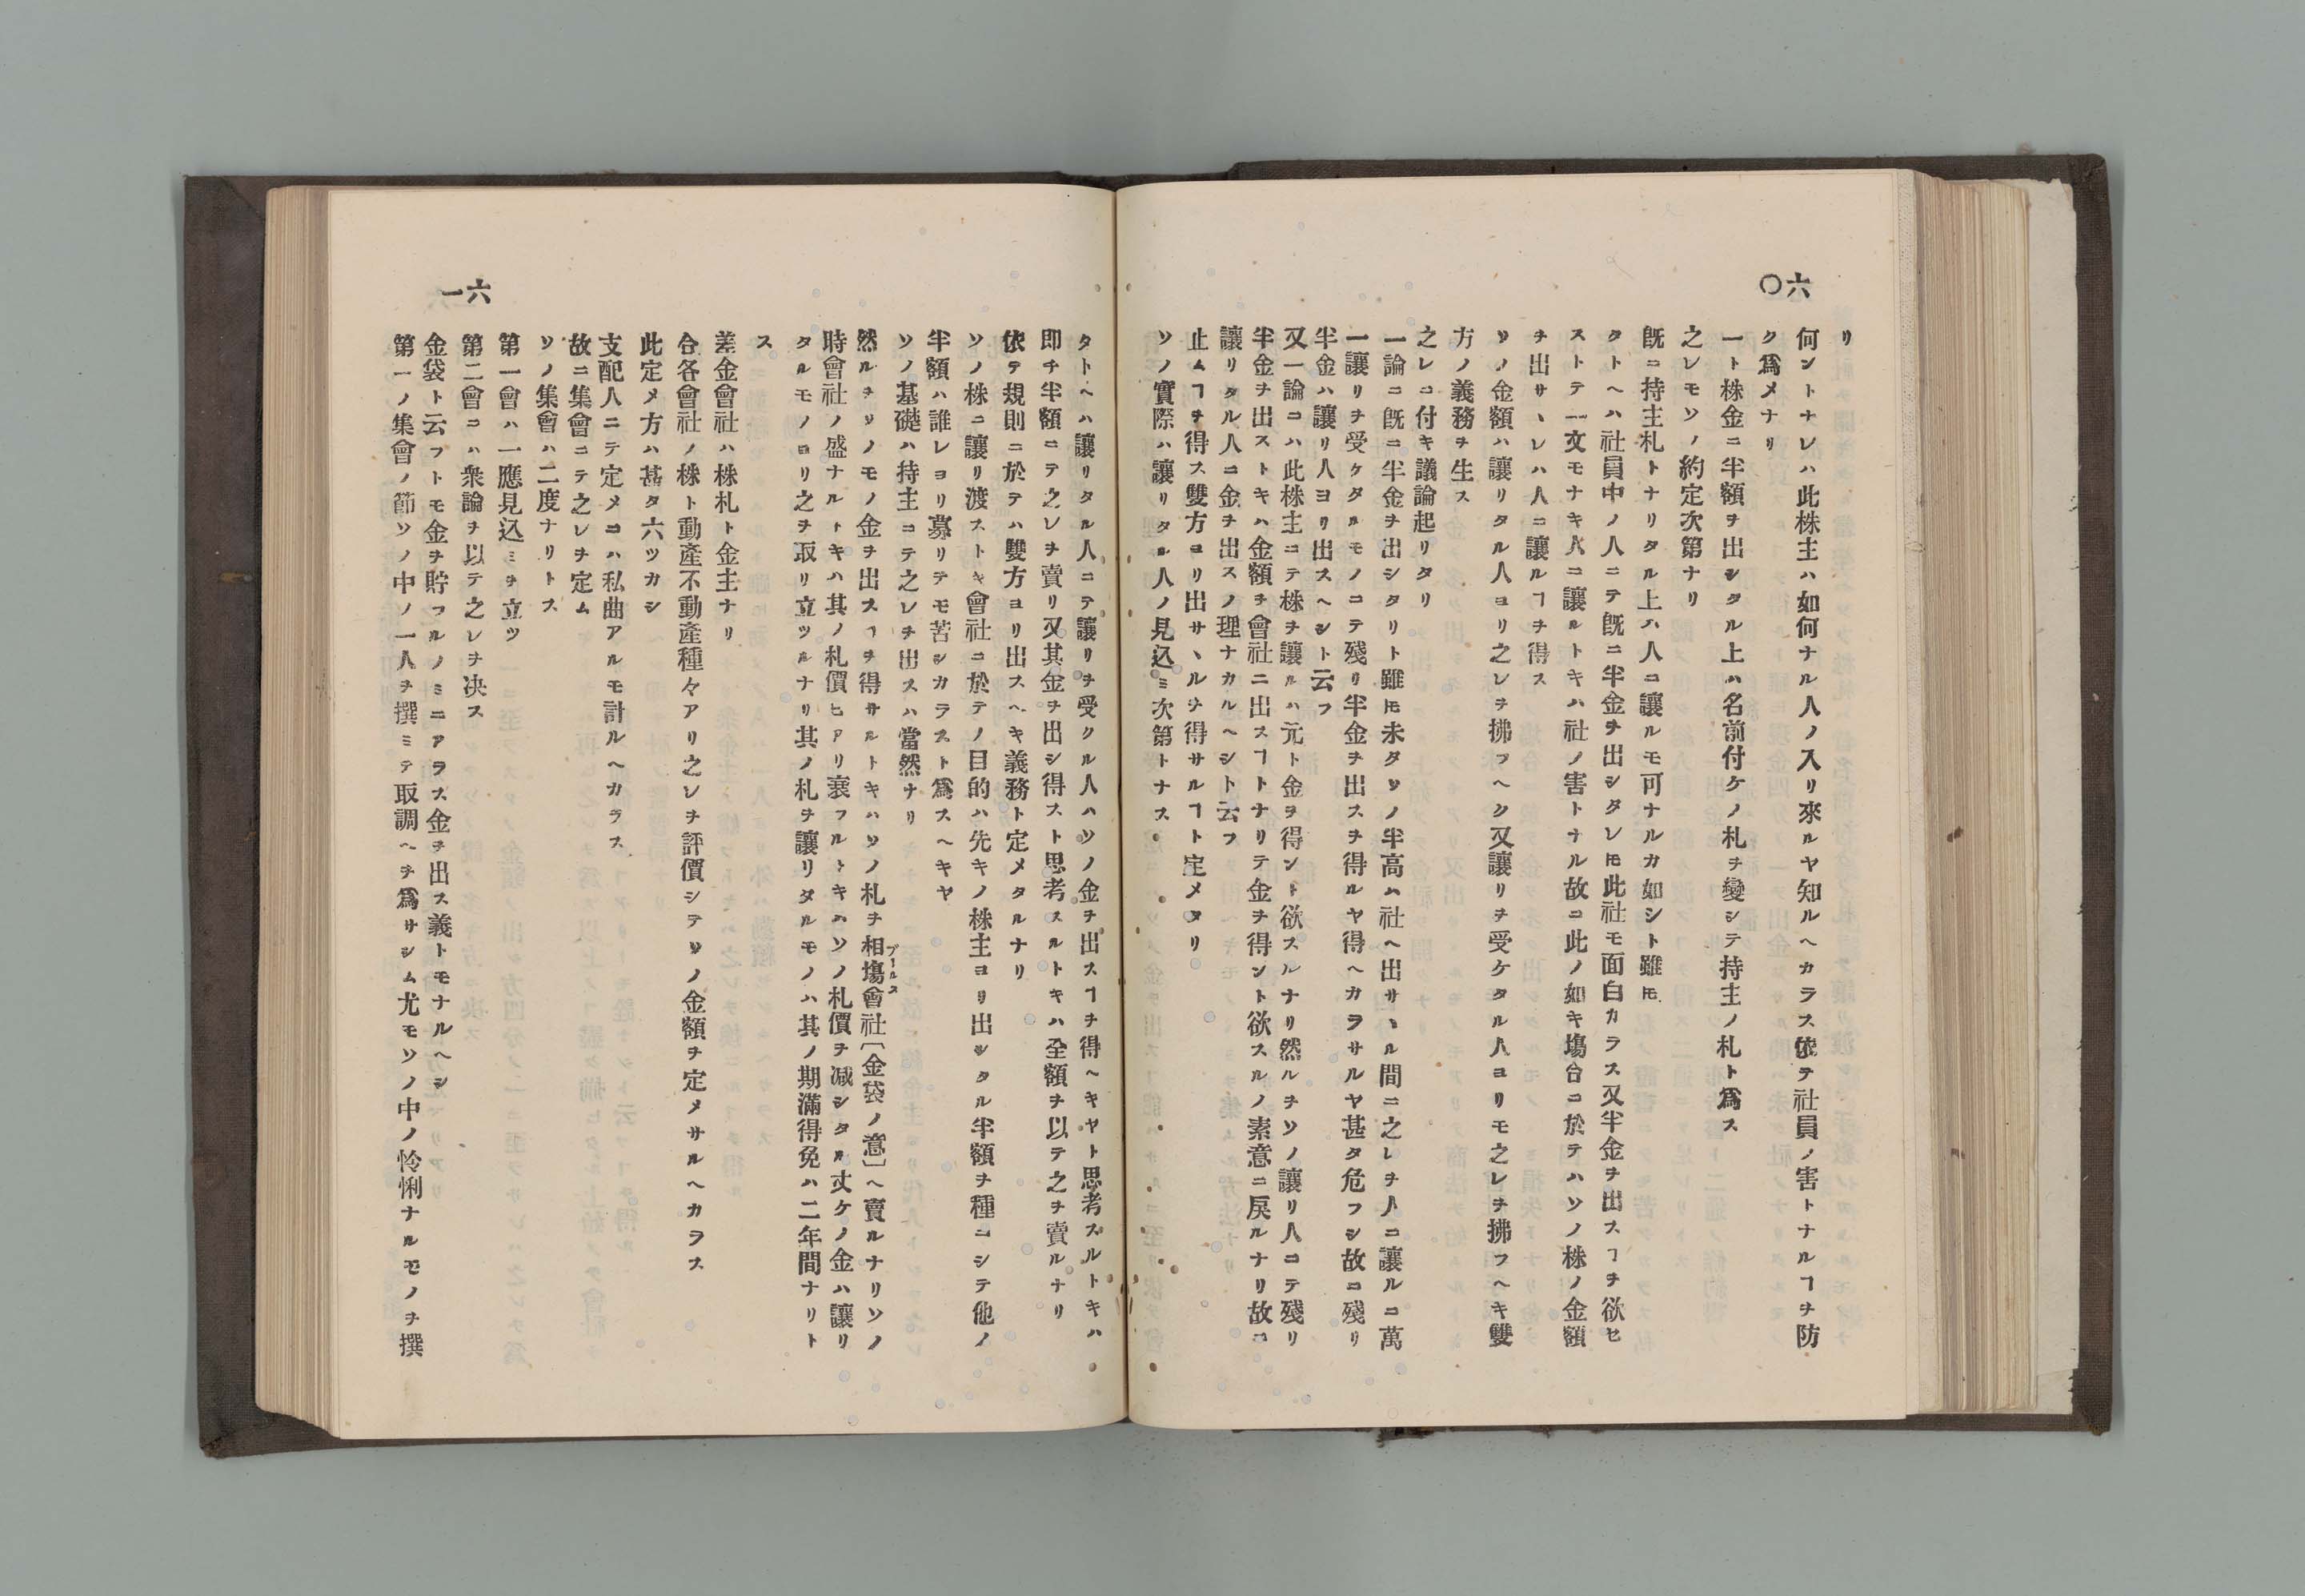 六〇
リ
何ントナレハ此株主ハ如何ナル人ノ入リ來ルヤ知ルヘカラス依テ社員ノ害トナルヿヲ防
ク爲メナリ
一ト株金ニ半額ヲ出シタル上ハ名前付ケノ札ヲ變シテ持主ノ札ト爲ス
之レモソノ約定次第ナリ
旣ニ持主札トナリタル上ハ人ニ讓ルモ可ナルカ如シト雖𪜈
タトヘハ社員中ノ人ニテ旣ニ半金ヲ出シタレ𪜈此社モ面白カラス又半金ヲ出スヿヲ欲セ
ストテ一文モナキ人ニ讓ルトキハ社ノ害トナル故ニ此ノ如キ塲合ニ於テハソノ株ノ金額
ヲ出サヽレハ人ニ讓ルヿヲ得ス
ソノ金額ハ讓リタル人ヨリ之レヲ拂フヘク又讓リヲ受ケタル人ヨリモ之レヲ拂フヘキ雙
方ノ義務ヲ生ス
之レニ付キ議論起リタリ
一論ニ旣ニ半金ヲ出シタリト雖𪜈未タソノ半高ハ社ヘ出サヽル間ニ之レヲ人ニ讓ルニ萬
一讓リヲ受ケタルモノニテ殘リ半金ヲ出スヲ得ルヤ得ヘカラサルヤ甚タ危フシ故ニ殘リ
半金ハ讓リ人ヨリ出スヘシト云フ
又一論ニハ此株主ニテ株ヲ讓ルハ元ト金ヲ得ント欲スルナリ然ルヲソノ讓リ人ニテ殘リ
半金ヲ出ストキハ金額ヲ會社ニ出スヿトナリテ金ヲ得ント欲スルノ素意ニ戾ルナリ故ニ
讓リタル人ニ金ヲ出スノ理ナカルヘシト云フ
止ムヿヲ得ス雙方ヨリ出サヽルヲ得サルヿト定メタリ
ソノ實際ハ讓リタル人ノ見込ミ次第トナス
六一
タトヘハ讓リタル人ニテ讓リヲ受クル人ハソノ金ヲ出スヿヲ得ヘキヤト思考スルトキハ
卽チ半額ニテ之レヲ賣リ又其金ヲ出シ得スト思考スルトキハ全額ヲ以テ之ヲ賣ルナリ
依テ規則ニ於テハ雙方ヨリ出スヘキ義務ト定メタルナリ
ソノ株ニ讓リ渡ストキ會社ニ於テノ目的ハ先キノ株主ヨリ出シタル半額ヲ種ニシテ他ノ
半額ハ誰レヨリ募リテモ苦シカラスト爲スヘキヤ
ソノ基礎ハ持主ニテ之レヲ出スハ當然ナリ
然ルヲソノモノ金ヲ出スヿヲ得サルトキハソノ札ヲ相塲會社〔金袋ノ意〕ヘ賣ルナリソノ
ブールス
時會社ノ盛ナルトキハ其ノ札價ヒアリ衰フルトキハソノ札價ヲ減シタル丈ケノ金ハ讓リ
タルモノヨリ之ヲ取リ立ツルナリ其ノ札ヲ讓リタルモノハ其ノ期滿得免ハ二年間ナリト
ス
差金會社ハ株札ト金主ナリ
合各會社ノ株ト動產不動產種々アリ之レヲ評價シテソノ金額ヲ定メサルヘカラス
此定メ方ハ甚タ六ツカシ
支配人ニテ定メニハ私曲アルモ計ルヘカラス
故ニ集會ニテ之レヲ定ム
ソノ集會ハ二度ナリトス
第一會ハ一應見込ミヲ立ツ
第二會ニハ衆論ヲ以テ之レヲ決ス
金袋ト云フトモ金ヲ貯フルノミニアラス金ヲ出ス義トモナルヘシ
第一ノ集會ノ節ソノ中ノ一人ヲ撰ミテ取調ヘヲ爲サシム尤モソノ中ノ怜悧ナルモノヲ撰